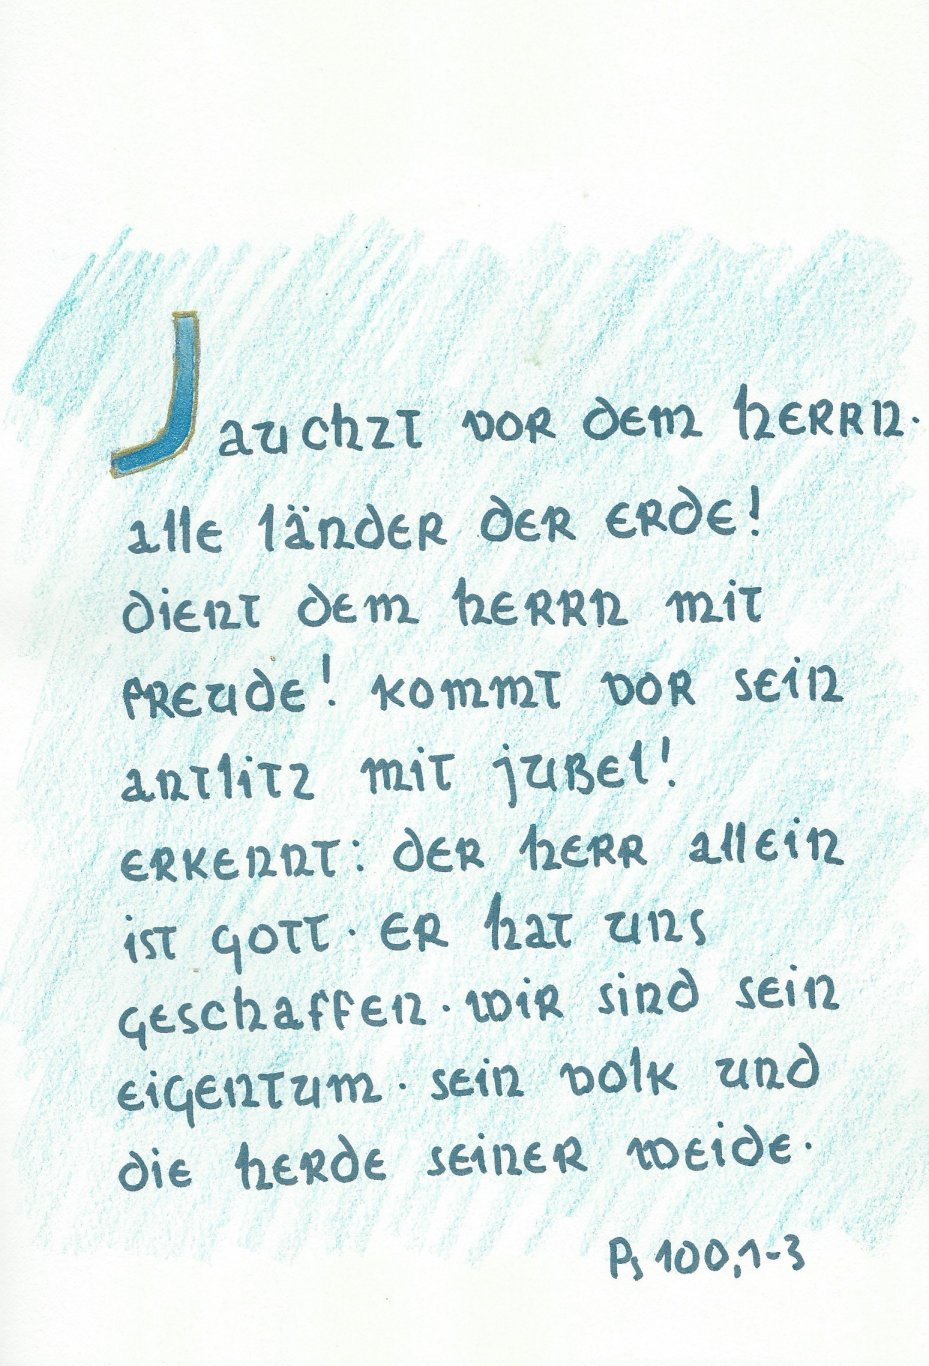 Jauchzt vor dem herrn.
alle länder der erde!
dient dem herrn mit
freude! kommt vor sein
antlitz mit jubel!
erkennt: der herr allein
ist gott. er hat uns
geschaffen. wir sind sein
eigentum. sein volk und
die herde seiner weide.
Ps 100,1-3